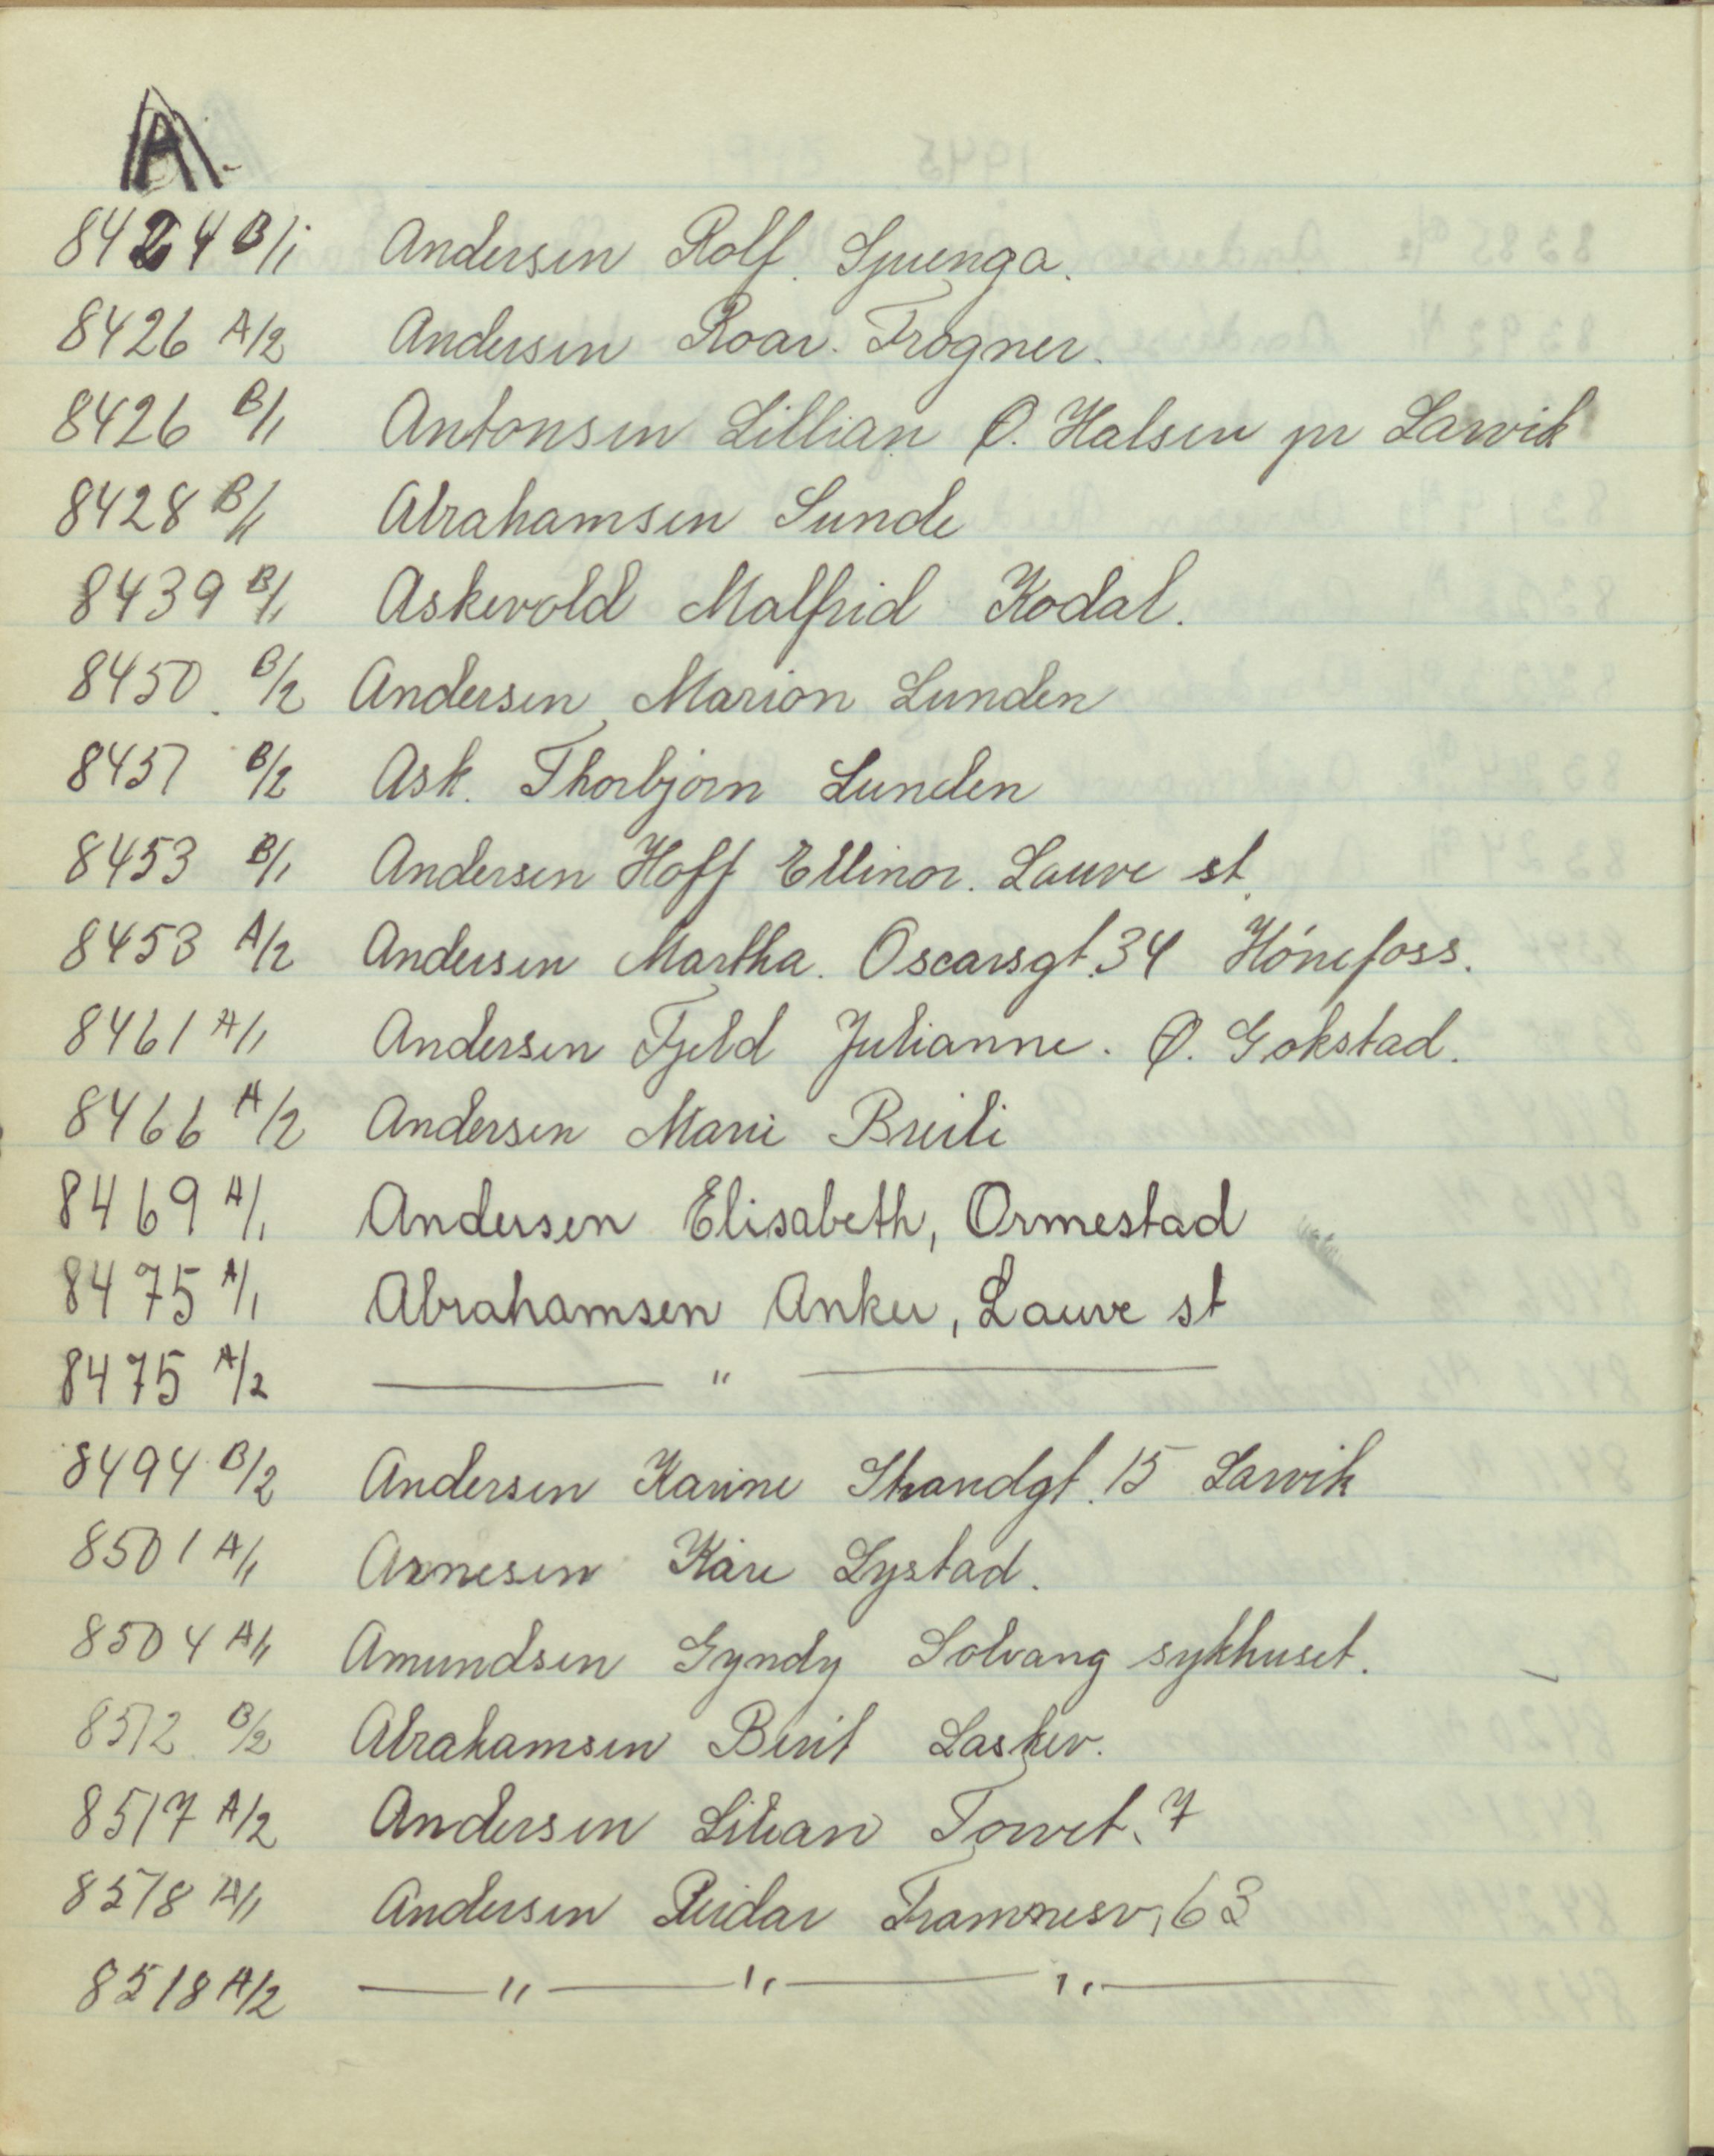 A.
8424 B/1 Andersen Rolf. Spurenga.
8426 A/2 Andersen Roar. Frogner.
8426 B/1 Antonsen Lillian Ø. Halsen pr Larvik
8428 B/1 Abrahamsen Sunde
8439 B/1 Askevold Malfrid Kodal.
8450. B/2 Andersen, Marion Lunden
8451 B/2 Ask. Thorbjørn Lunden
8453 B/1 Andersen Hoff Ellinor. Lauve st.
8453 A/2 Andersen Martha. Oscarsgt. 34 Hönefoss.
8461 A/1 Andersen Fjeld Julianne. Ø. Gokstad.
8466 A/2 Andersen Marie Breili
8469 A/1 Andersen Elisabeth, Ormestad
8475 A/1 Abrahamsen Anker, Lauve st
8475 A/2 — " —
8494 B/2 Andersen Karine Strandgt. 15 Larvik
8501 A/1 Arnesen Kåre Lystad.
8504 A/1 Amundsen Gyndy Solvang sykhuset.
8512. B/2 Abrahamsen Berit Lasken.
8517 A/2 Andersen Lilian Torvet. 7
8518 A/1 Andersen Reidar Framnesv. 63
8518 A/2 — " — " — " —